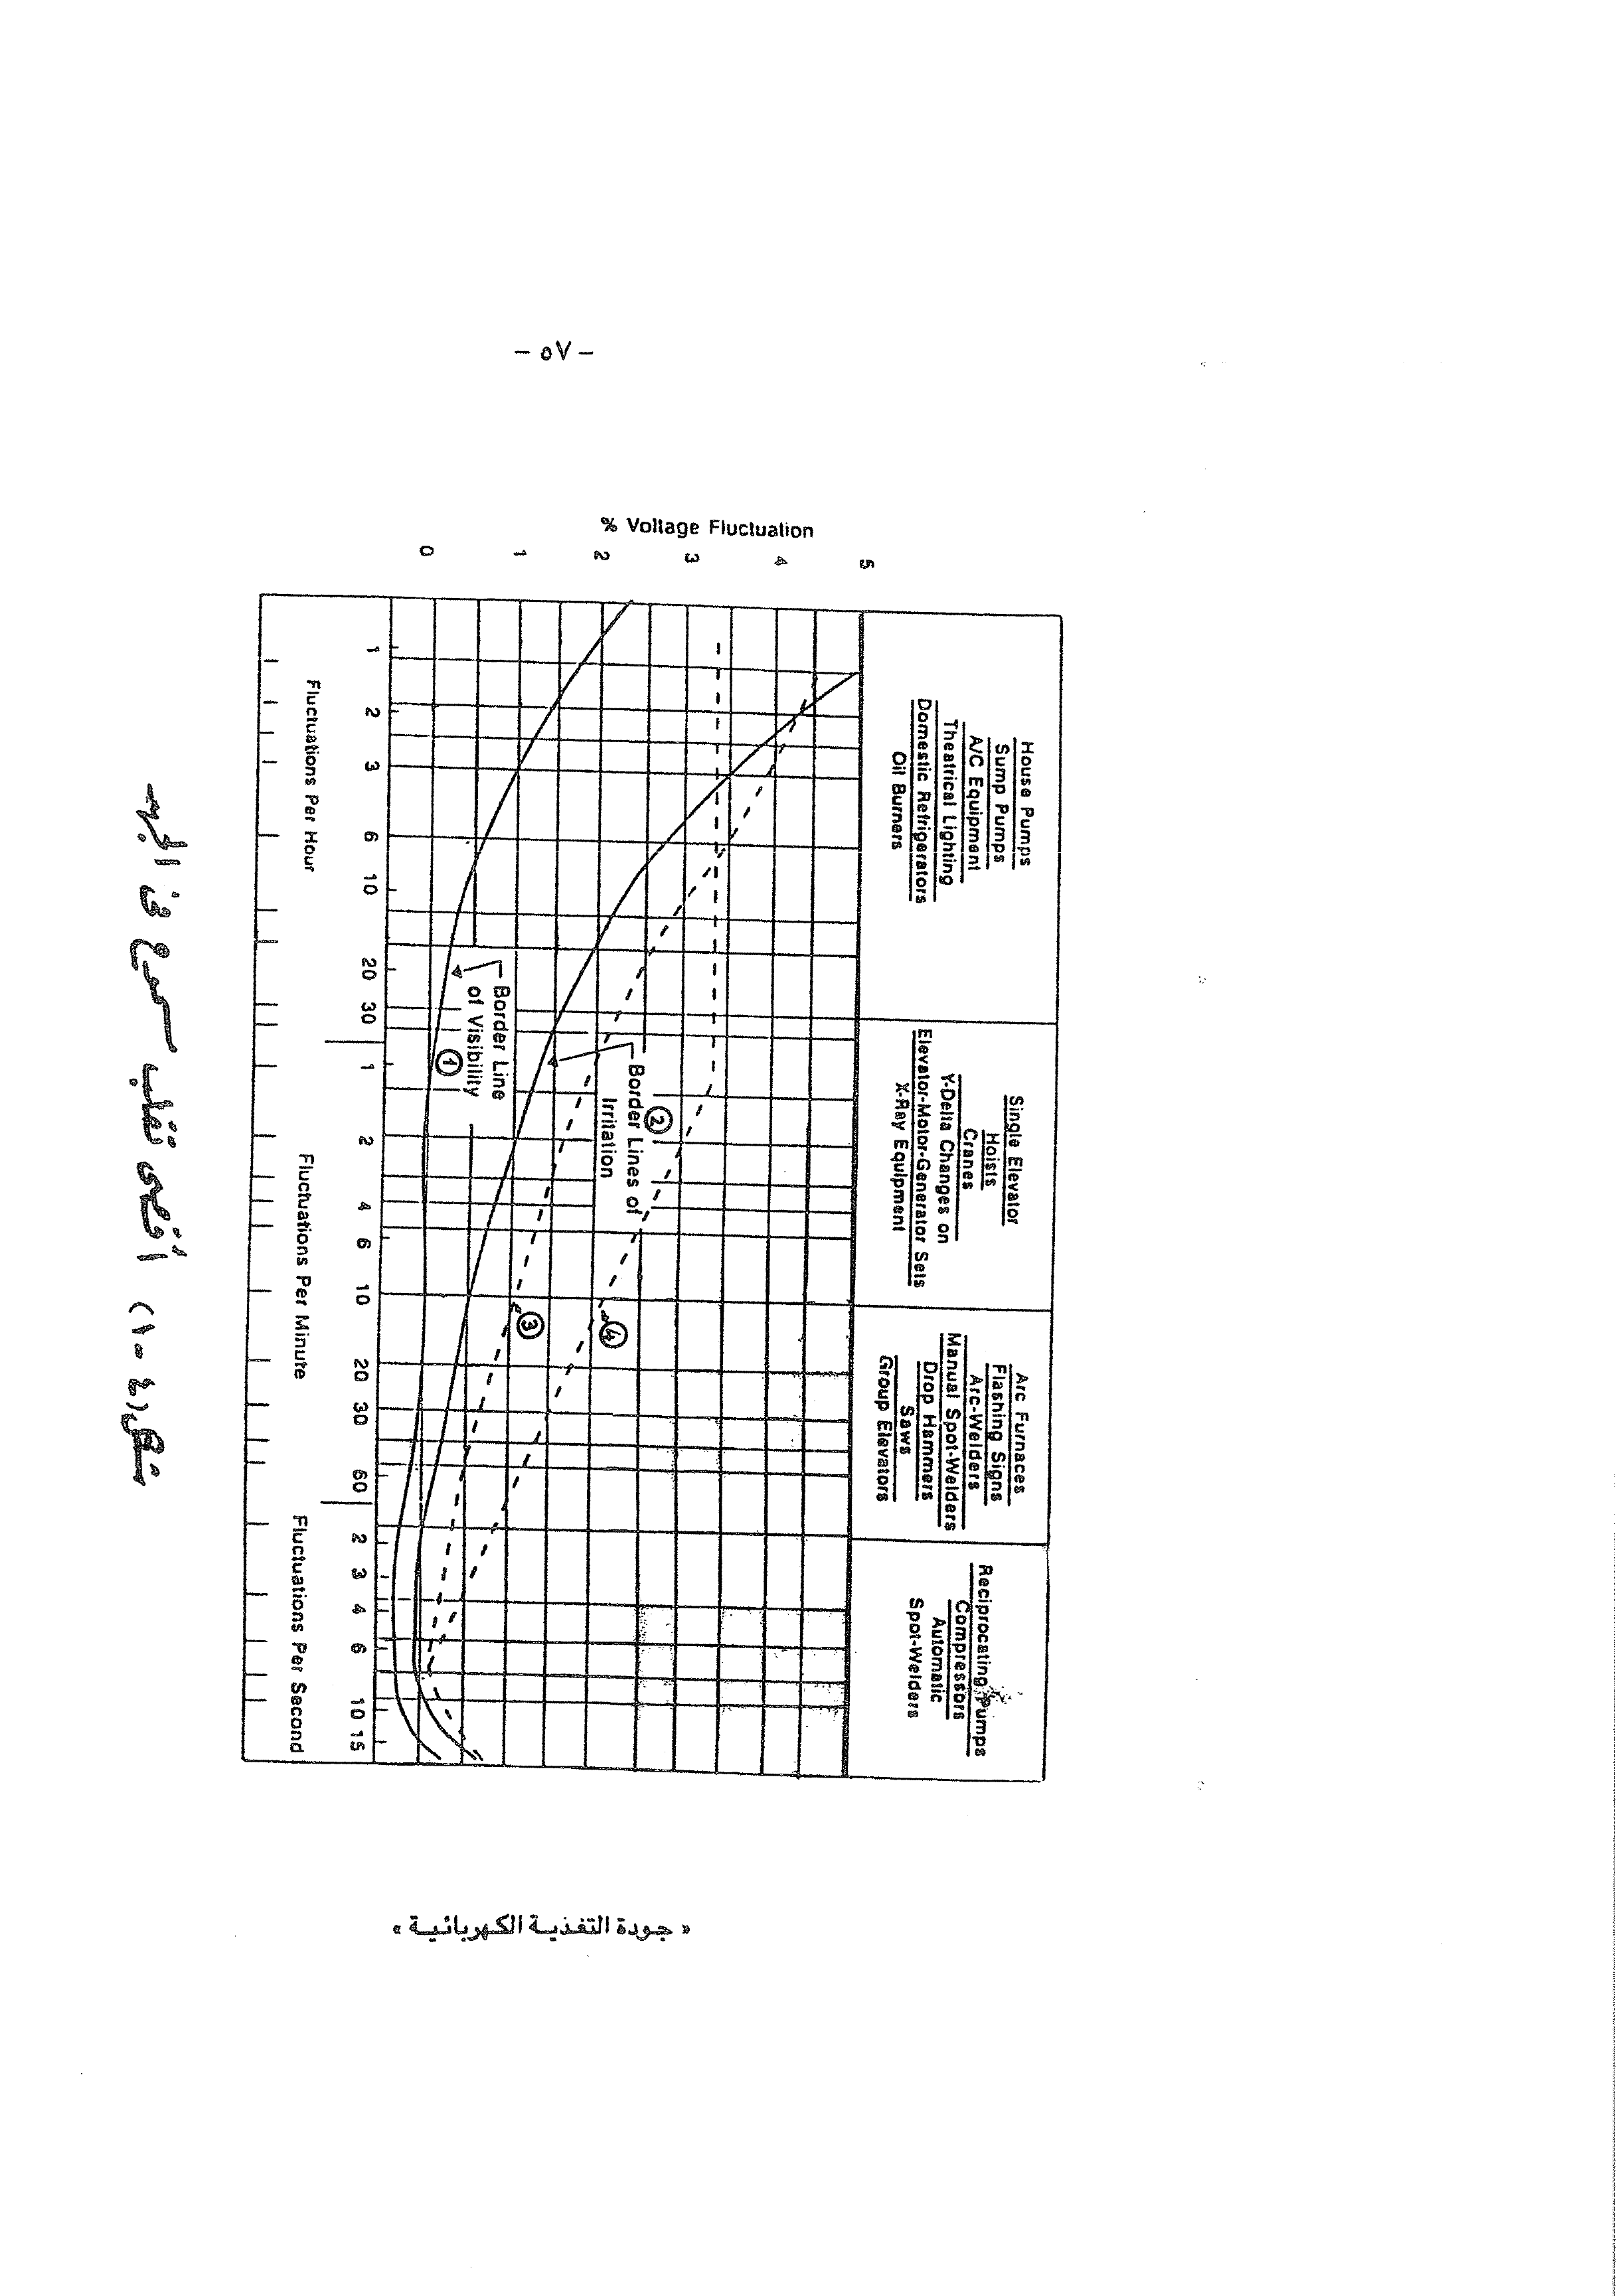 – ٥٧ –
% Voltage Fluctuation
0
1
2
3
4
5
House Pumps
Sump Pumps
A/C Equipment
Theatrical Lighting
Domestic Refrigerators
Oil Burners
Single Elevator
Hoists
Cranes
Y-Delta Changes on
Elevator-Motor-Generator Sets
X-Ray Equipment
Arc Furnaces
Flashing Signs
Arc-Welders
Manual Spot-Welders
Drop Hammers
Saws
Group Elevators
Reciprocating Pumps
Compressors
Automatic
Spot-Welders
Border Lines of
Irritation
2
Border Line
of Visibility
1
3
4
1 2 3 6 10 20 30 1 2 4 6 10 20 30 60 2 3 4 6 10 15
Fluctuations Per Hour
Fluctuations Per Minute
Fluctuations Per Second
شكل (٤-١) أقصى تقلب مسموح فى الجهد
« جودة التغذية الكهربائية »